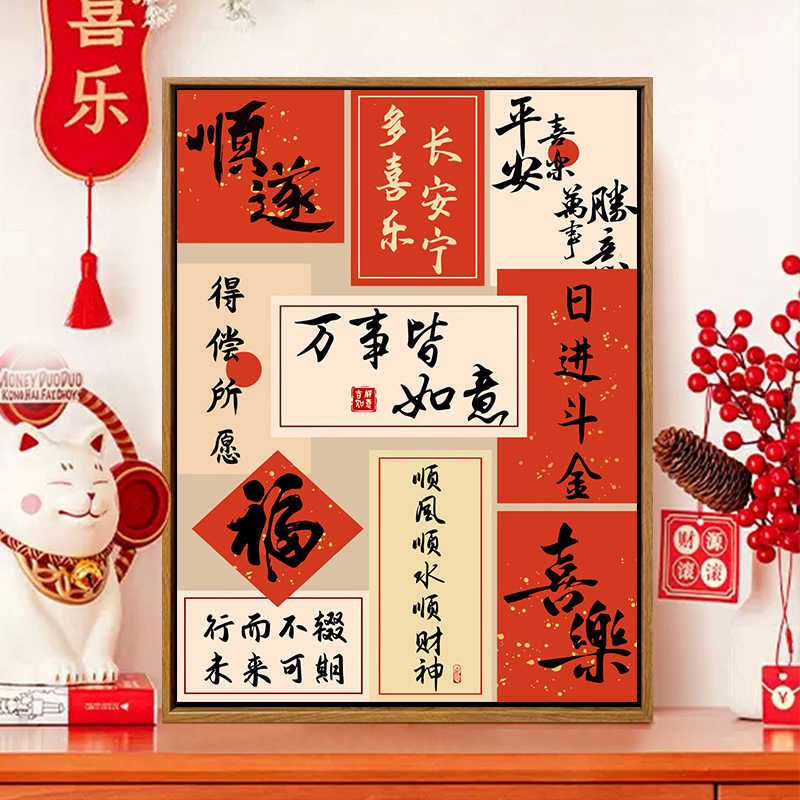 喜乐
順遂
多喜乐
长安宁
平安
喜樂
萬事
勝意
得偿所愿
万事皆
如意
日进斗金
福
順风順水順财神
喜樂
行而不辍
未来可期
MONEY DUO DUO
KONG HAI FAT CHOY
财源
滚滚